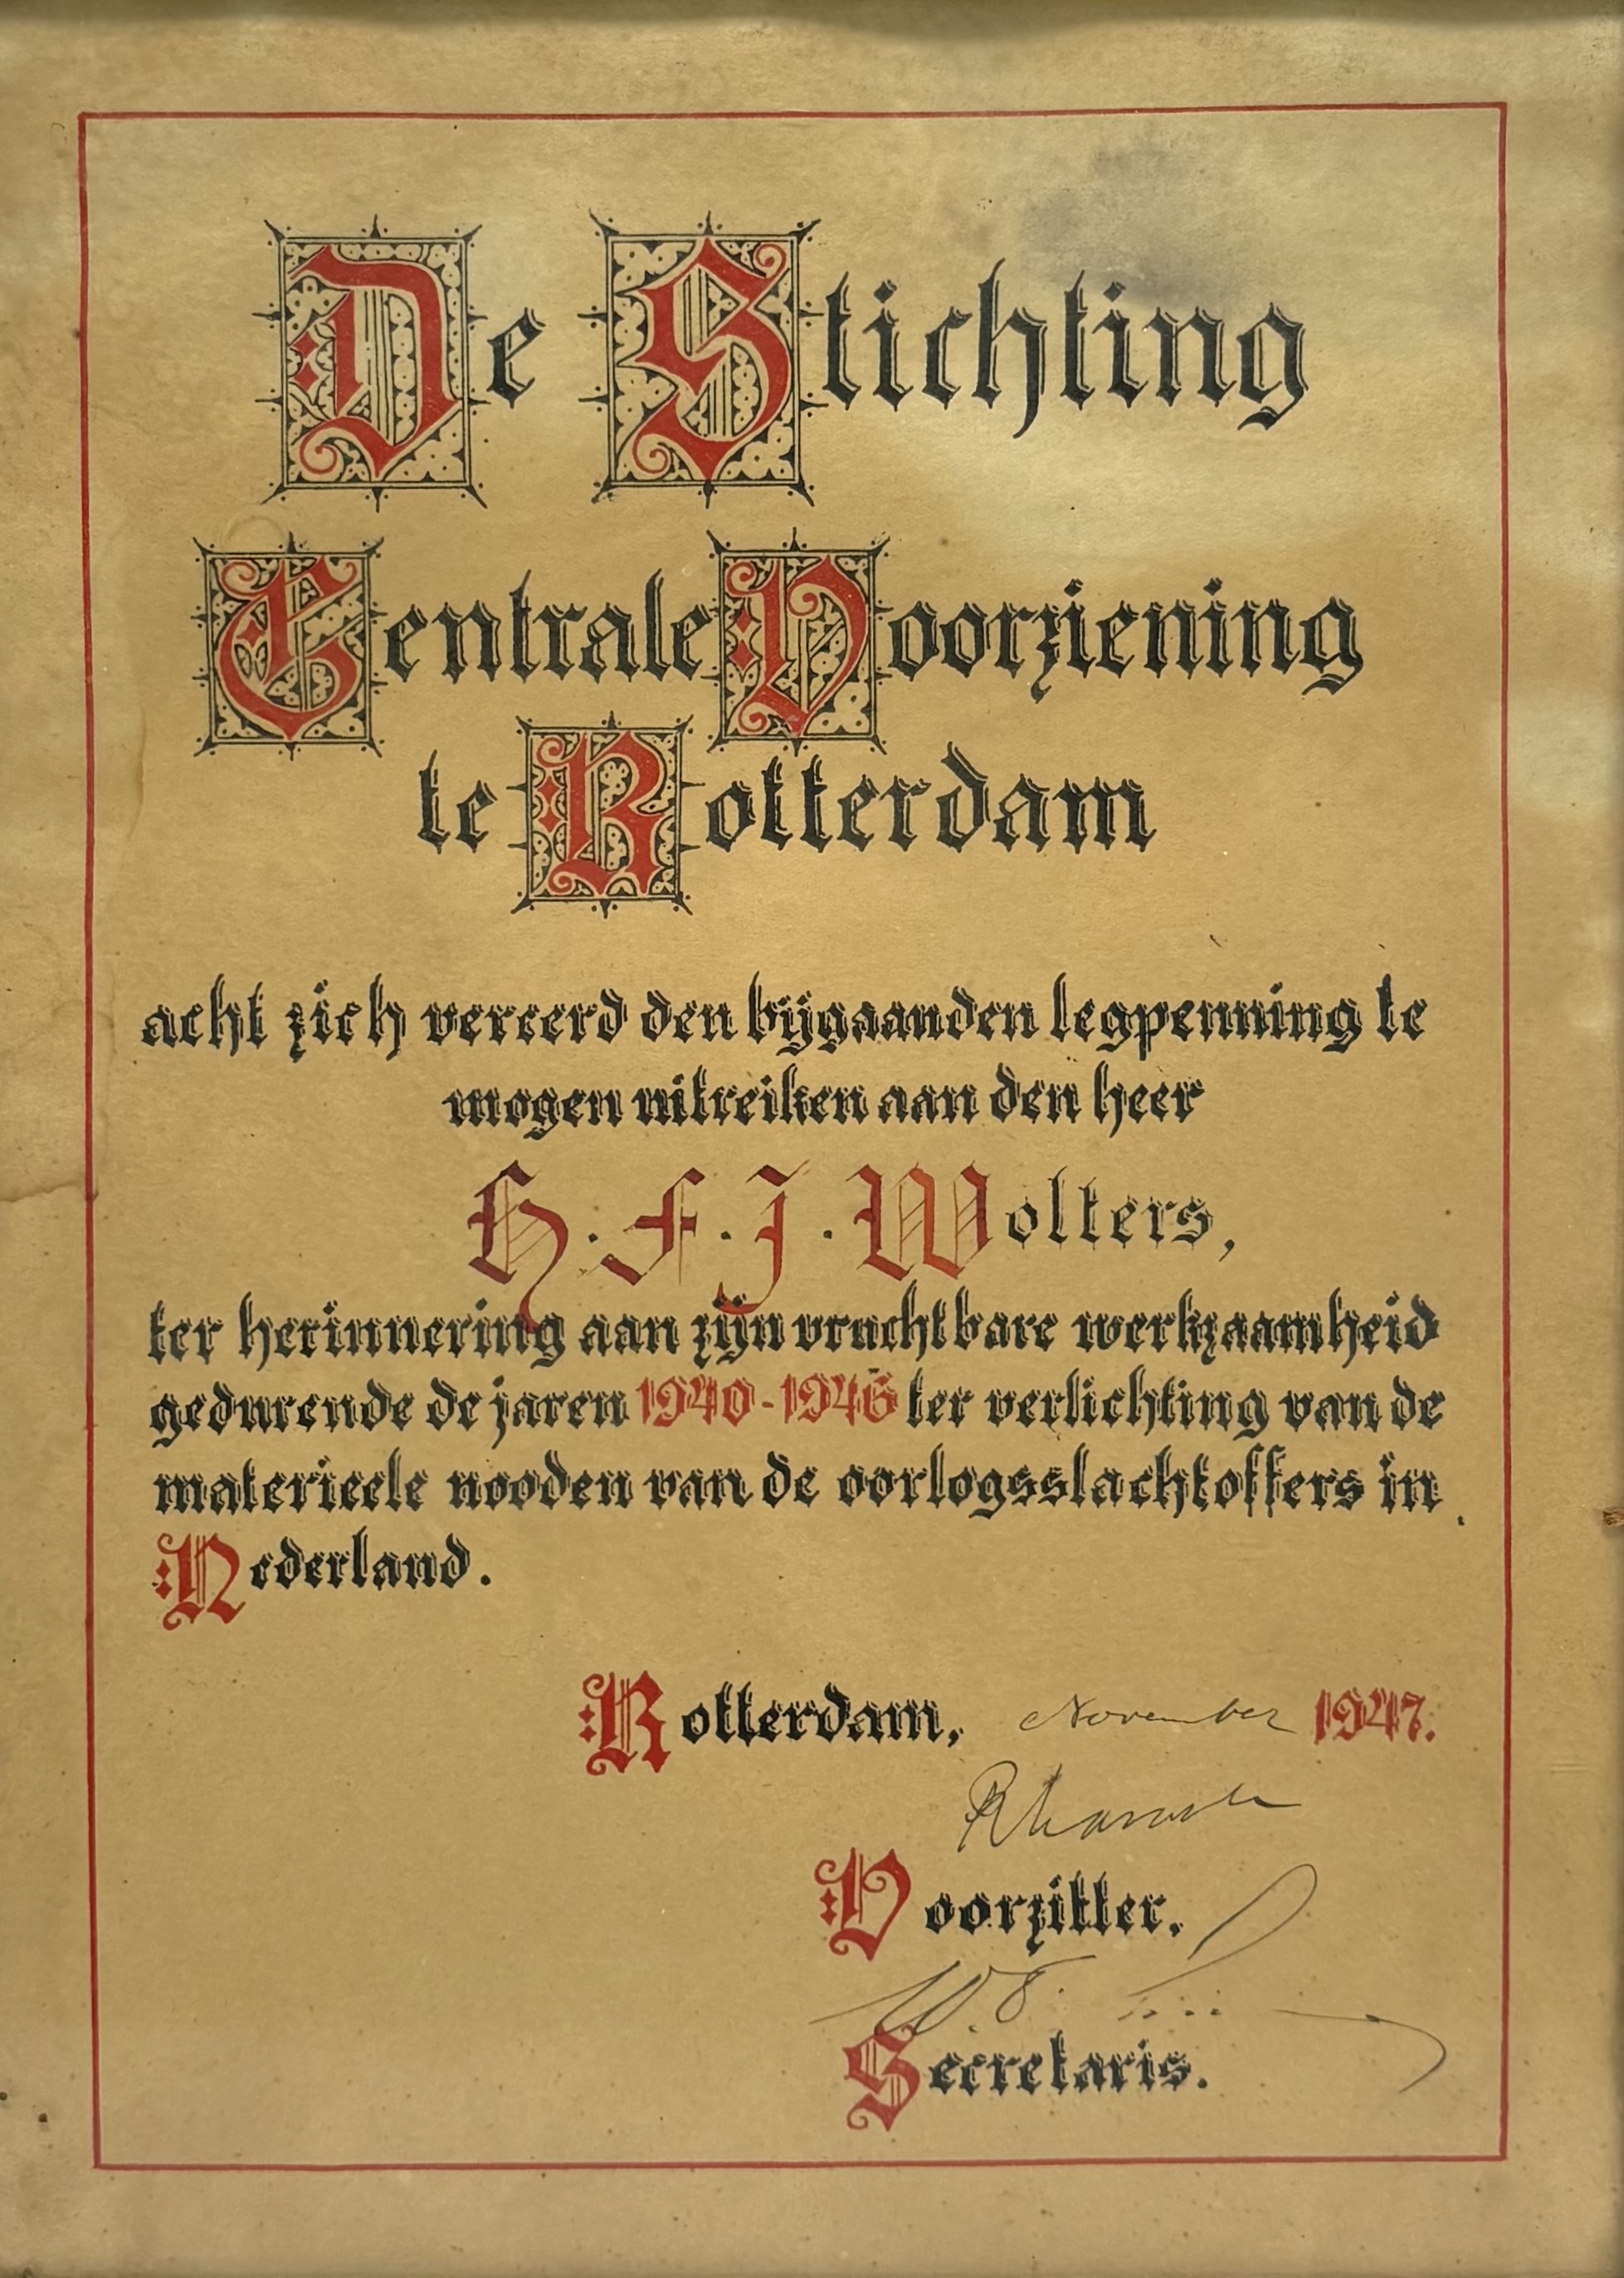 De Stichting
Centrale Voorziening
te Rotterdam
acht zich vereerd den bijgaanden legpenning te
mogen uitreiken aan den heer
H. F. J. Wolters,
ter herinnering aan zijn vruchtbare werkzaamheid
gedurende de jaren 1940-1946 ter verlichting van de
materieele nooden van de oorlogsslachtoffers in
Nederland.
Rotterdam, November 1947.
Voorzitter.
Secretaris.